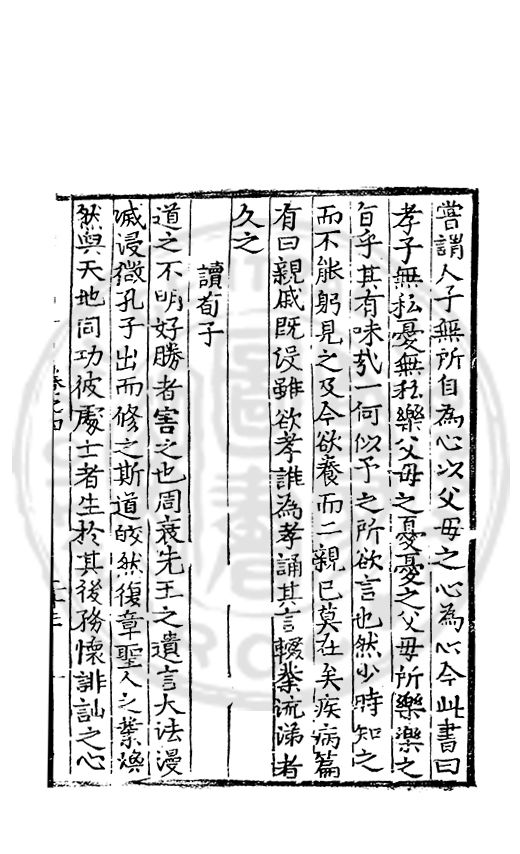 嘗謂人子無所自為心以父母之心為心今此書曰
孝子無私憂無私樂父母之憂憂之父母所樂樂之
旨乎其有味哉一何似予之所欲言也然少時知之
而不能躬見之及今欲養而二親已莫在矣疾病篇
有曰親戚既沒雖欲孝誰為孝誦其言輟業流涕者
久之
讀荀子
道之不明好勝者害之也周衰先王之遺言大法漫
滅浸微孔子出而修之斯道皎然復章聖人之業煥
然與天地同功彼處士者生於其後務懷誹訕之心
卷之四